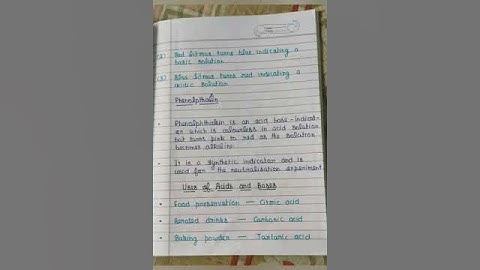 (2) Red litmus turns blue indicating a
basic solution
(3) Blue litmus turns red indicating a
acidic solution
Phenolpthalein
• Phenolphthalein is an acid base-indicat-
er which is colourless in acid solution
but turns pink to red as the solution
becomes alkaline.
• It is a synthetic indicator and is
used for the neutralisation experiment.
Uses of Acids and Bases
• Food preservation — Citric acid
• Aerated drinks — Carbonic acid
• Baking powder — Tartaric acid